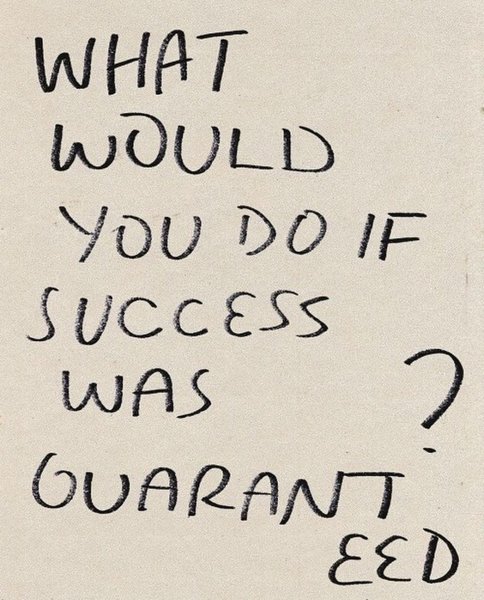 WHAT
WOULD
YOU DO IF
SUCCESS
WAS ?
GUARANT
EED